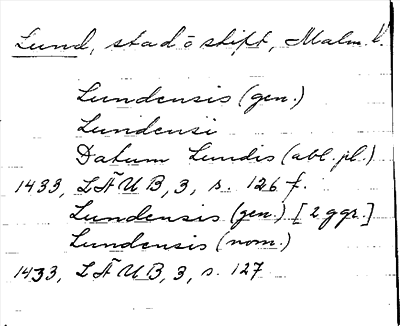 Lund, stad o stift, Malm. l.
Lundensis (gen.)
Lundensi
Datum Lundis (abl. pl.)
1433, LÄUB, 3, s. 126 f.
Lundensis (gen.) [2 ggr.]
Lundensis (nom.)
1433, LÄUB, 3, s. 127